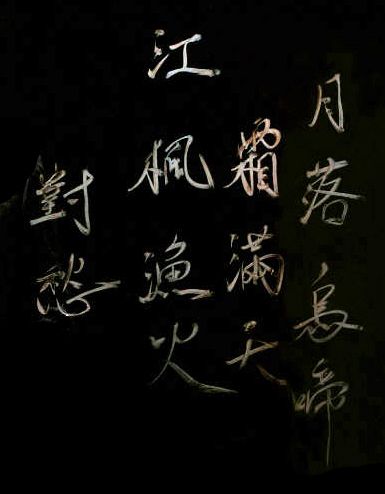 月落烏啼
霜滿天
江楓漁火
對愁